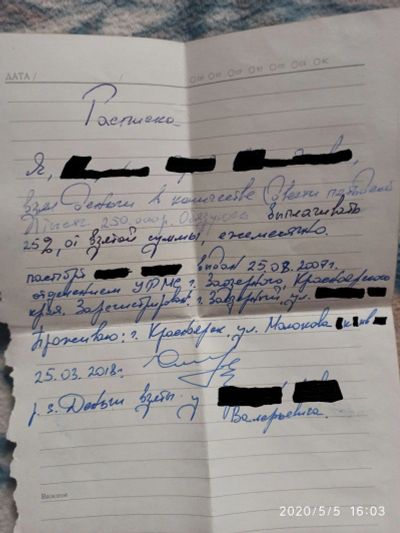 ДАТА /
Расписка
Я,
взял деньги в количестве Двести пятьдесят
тысяч 250.000р. Обязуюсь выплачивать
25%, от взятой суммы, ежемесячно.
паспорт выдан 25.08.2007г.
отделением УФМС г. Заозерного, Красноярского
края. Зарегистрирован: г. Заозерный, ул.
Проживаю: г. Красноярск, ул. Молокова
25.03.2018г.
р.s. Деньги взяты у
Валерьевича.
Важное
2020/5/5 16:03